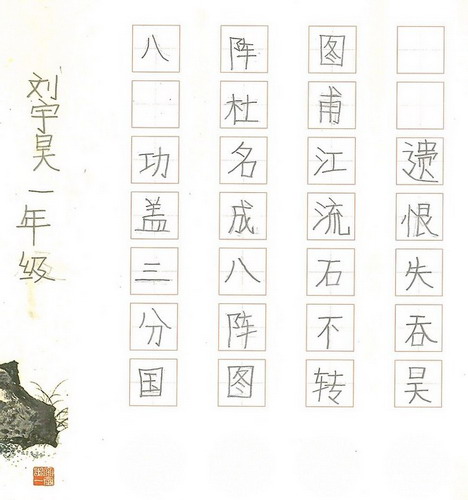 八阵图
杜甫
功盖三分国
名成八阵图
江流石不转
遗恨失吞吴
刘宇昊一年级